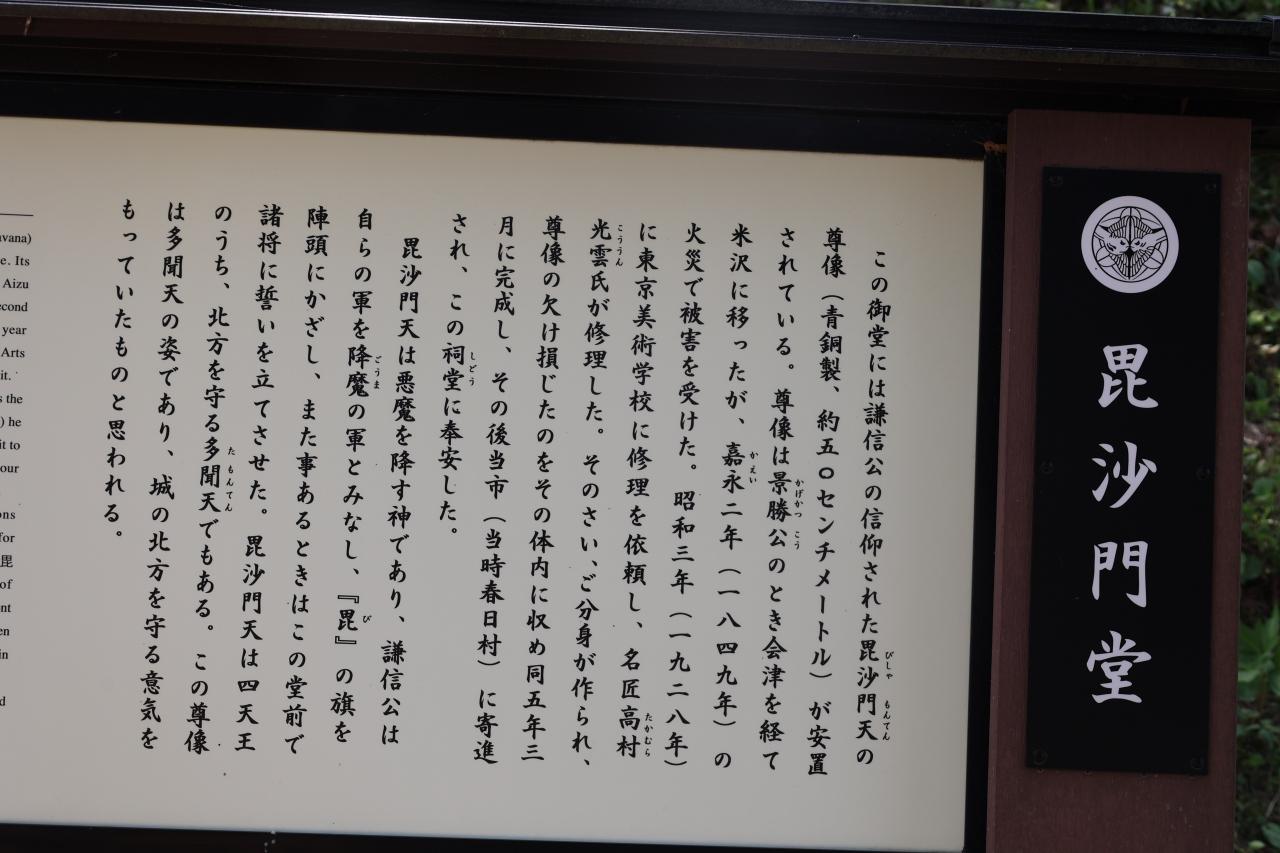 毘沙門堂
この御堂には謙信公の信仰された毘沙門天の
尊像（青銅製、約五〇センチメートル）が安置
されている。尊像は景勝公のとき会津を経て
米沢に移ったが、嘉永二年（一八四九年）の
火災で被害を受けた。昭和三年（一九二八年）
に東京美術学校に修理を依頼し、名匠高村
光雲氏が修理した。そのさい、ご分身が作られ、
尊像の欠け損じたのをその体内に収め同五年三
月に完成し、その後当市（当時春日村）に寄進
され、この祠堂に奉安した。
毘沙門天は悪魔を降す神であり、謙信公は
自らの軍を降魔の軍とみなし、『毘』の旗を
陣頭にかざし、また事あるときはこの堂前で
諸将に誓いを立てさせた。毘沙門天は四天王
のうち、北方を守る多聞天でもある。この尊像
は多聞天の姿であり、城の北方を守る意気を
もっていたものと思われる。
vana)
e. Its
Aizu
econd
year
Arts
it.
s the
) he
it to
our
ons
for
毘
of
nt
en
in
d